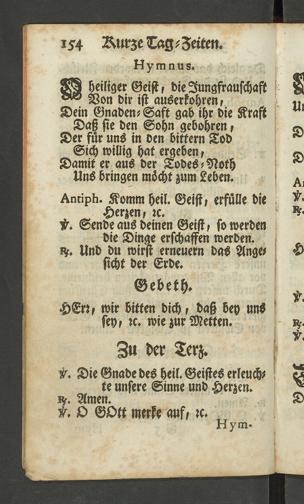 154 Kurze Tag-Zeiten.
Hymnus.
O heiliger Geist, die Jungfrauschaft
Von dir ist auserkohren,
Dein Gnaden-Saft gab ihr die Kraft
Daß sie den Sohn gebohren,
Der für uns in den bittern Tod
Sich willig hat ergeben,
Damit er aus der Todes-Noth
Uns bringen möcht zum Leben.
Antiph. Komm heil. Geist, erfülle die
Herzen, ꝛc.
℣. Sende aus deinen Geist, so werden
die Dinge erschaffen werden.
℟. Und du wirst erneuern das Ange-
sicht der Erde.
Gebeth.
HErr, wir bitten dich, daß bey uns
sey, ꝛc. wie zur Metten.
Zu der Terz.
℣. Die Gnade des heil. Geistes erleuch-
te unsere Sinne und Herzen.
℟. Amen.
℣. O GOtt merke auf, ꝛc.
Hym-